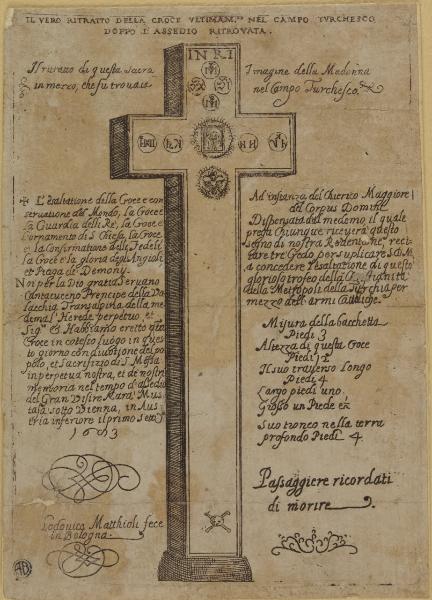 IL VERO RITRATTO DELLA CROCE VLTIMAM.te NEL CAMPO TVRCHESCO
DOPPO L'ASSEDIO RITROVATA.
INRI
Il rovezzo di questa sacra
in mezzo, che fu trouata
Imagine della Madonna
nel Campo Turchesco.
✠ L'esaltatione della Croce e con
seruatione del Mondo, la Croce è
la Guardia delli Re, la Croce è
l'ornamento di S. Chiesa, la Croce
e la Confirmatione delle Fedeli
la Croce e la gloria degl'Angioli
et Piaga de Demony.
Noi per la Dio gratia Seruano
Cantacuzeno Prencipe della Va
lacchia Transalpina della me
dema l'Herede perpetuo, et
Sig.r et Habbiamo eretto q.ta
Croce in cotesto luogo in ques
to giorno con diuotione del po
polo, et Sacrifizio di S. Messa
in perpetua nostra, et de nostri
memoria nel tempo d'assedio
del Gran Visire Kara Mus
tafa sotto Vienna, in Aus
tria inferiore il primo Sett.
1683
Lodovico Matthioli fece
in Bologna.
Ad instanza del Chierico Maggiore
del Corpus Domini
Dispensata del medemo, il quale
prega Chiunque riceuerà questo
segno di nostra Redentione, reci
tare tre Credo per suplicare S.D.M.
a concedere l'esaltatione di questo
glorioso trofeo della
della Metropoli della Turchia per
mezzo dell'armi
Misura della bacchetta
Piedi 3
Altezza di questa Croce
Piedi 12
Il suo trauerso longo
Piedi 4
Largo piedi uno.
Grosso un Piede
Suo tronco nella terra
profondo Piedi 4
Passaggiere ricordati
di morire